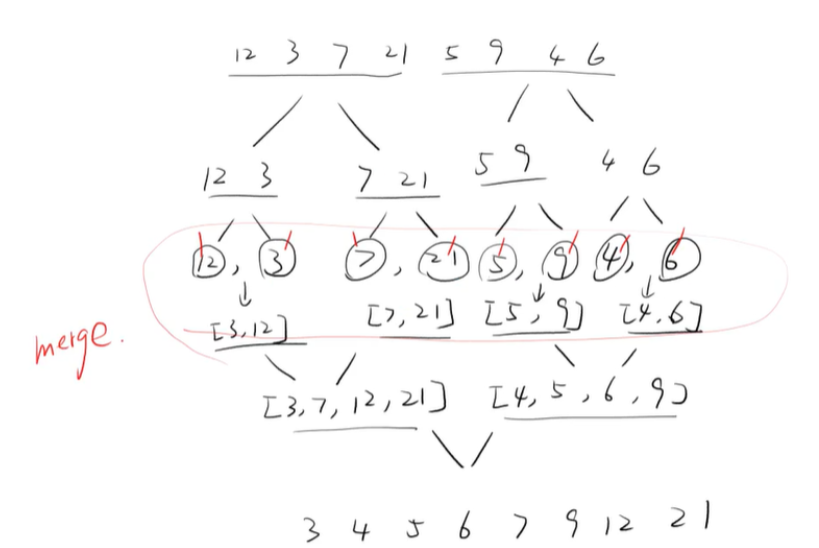 12 3 7 21 5 9 4 6
12 3 7 21 5 9 4 6
12, 3 7, 21 5, 9 4, 6
[3,12] [7,21] [5,9] [4,6]
merge.
[3,7,12,21] [4,5,6,9]
3 4 5 6 7 9 12 21